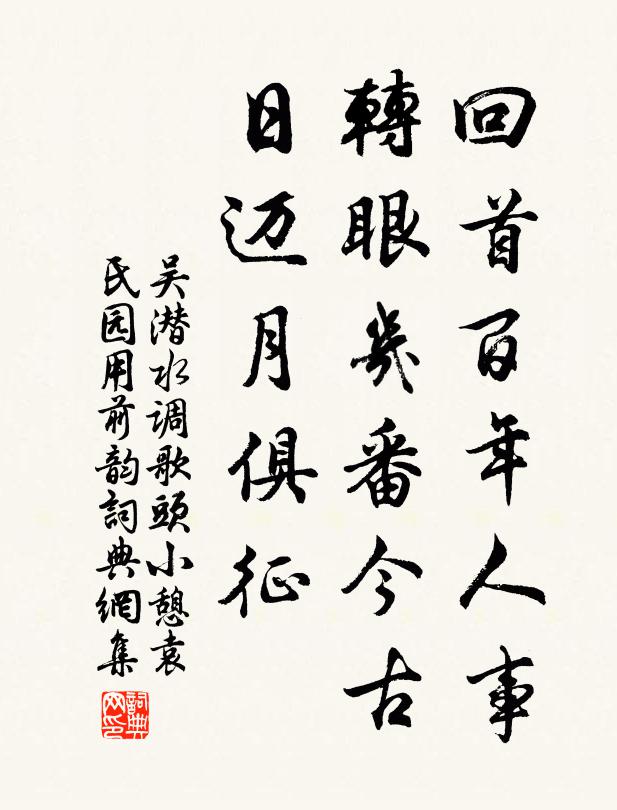 回首百年人事
轉眼幾番今古
日迈月俱征
吴潜水调歌頭小憩袁
氏园用前韵詞典網集
詞典
网印